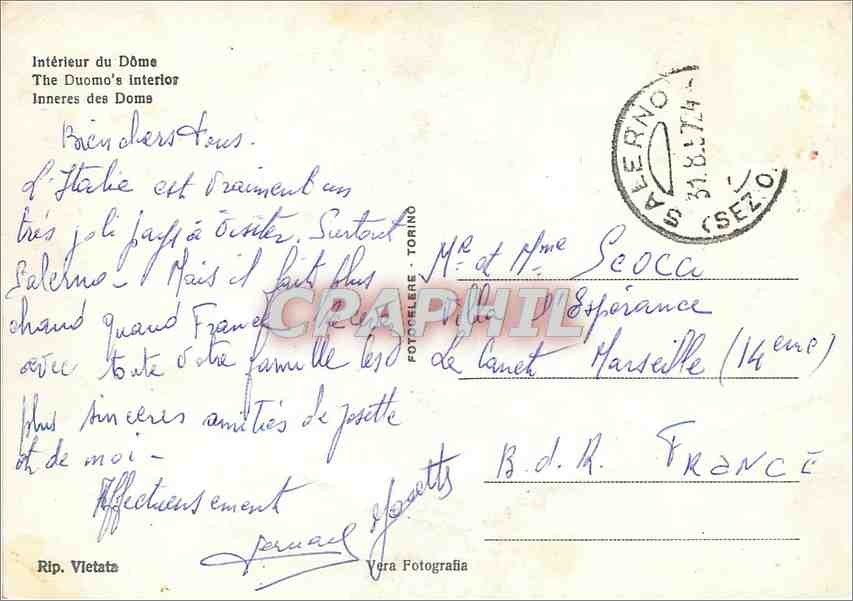 Intérieur du Dôme
The Duomo's interior
Inneres des Doms
Bien chers tous.
L'Italie est vraiment un
très joli pays à visiter. Surtout
Salerno - Mais il fait plus
chaud quand France. Recevez
avec toute votre famille les
plus sincères amitiés de Josette
et de moi -
Affectueusement
Bernard Josette
Rip. Vietata
Vera Fotografia
FOTOCELERE - TORINO
CPAPHIL
SALERNO
31.8.
(SEZ.O.
Mr et Mme Scocci
Villa d'Espérance
Le Canet Marseille (14eme)
B.d.R. FRANCE